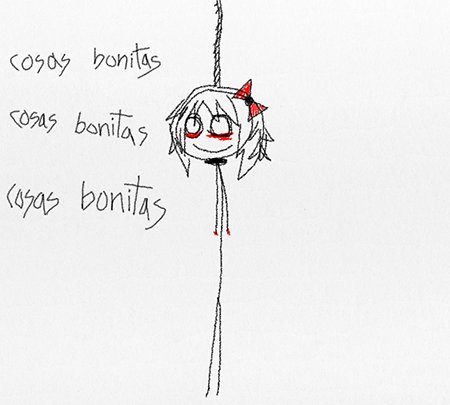 cosas bonitas
cosas bonitas
cosas bonitas